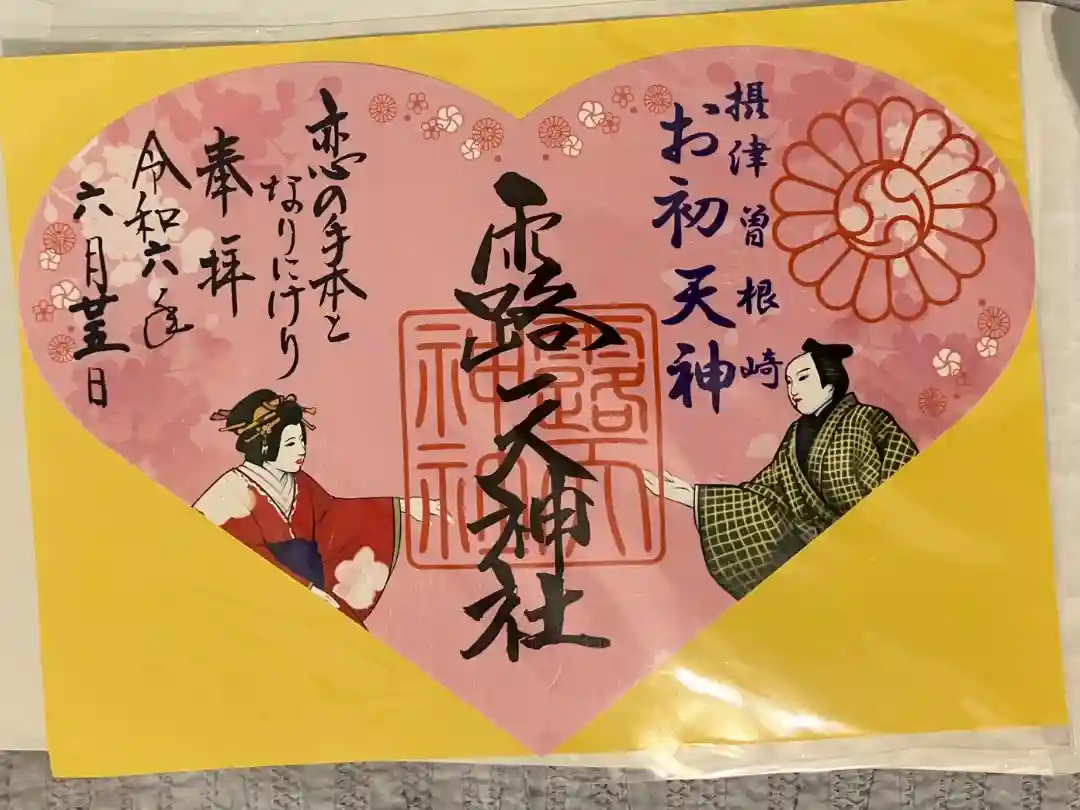 摂津曽根崎
お初天神
露天神社
露天
神社
恋の手本と
なりにけり
奉拝
令和六年
六月廿五日